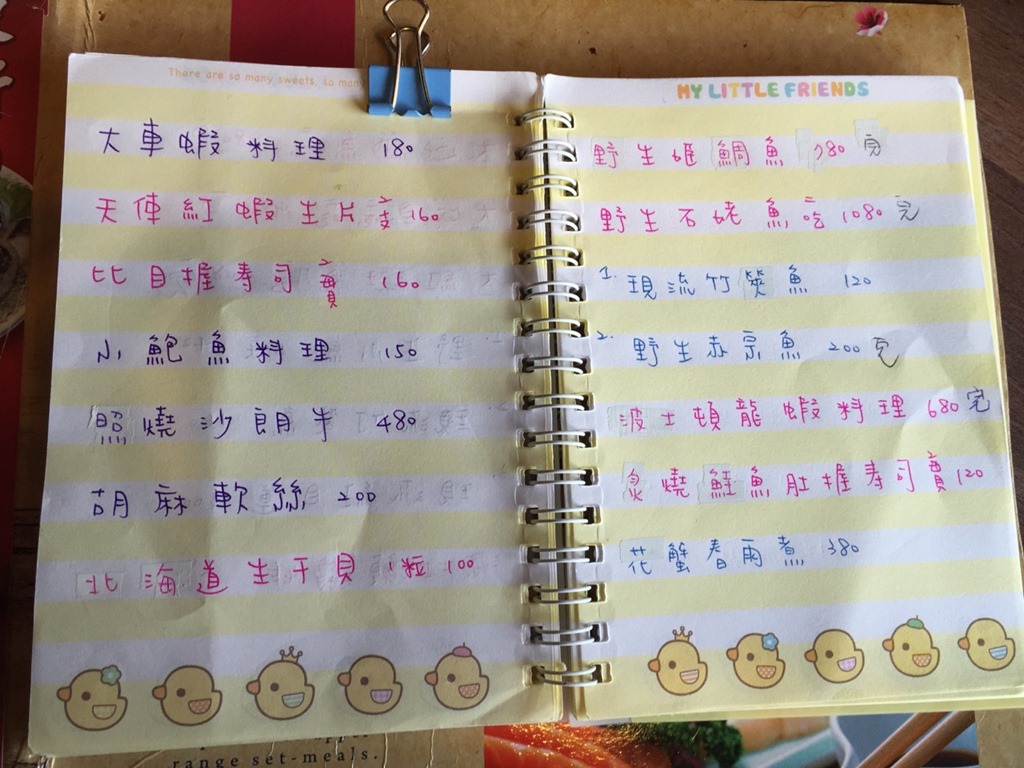 There are so many sweets, so man
大車蝦料理 180
天使紅蝦生片 2支 160
比目握壽司 2貫 160
小鮑魚料理 150
照燒沙朗牛 480
胡麻軟絲 200
北海道生干貝 1粒 100
MY LITTLE FRIENDS
野生 鯛魚 380 完
野生石姥魚吃 1080 完
1. 現流竹筴魚 120
2. 野生赤宗魚 200 完
波士頓龍蝦料理 680 完
炙燒鮭魚肚握壽司貫 120
花蟹春雨煮 380
range set-meals.